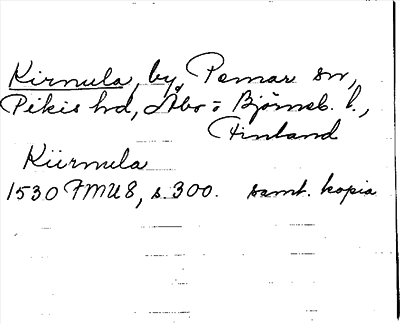 Kirnula, by, Pemar sn,
Pikis hd, Åbo = Björneb. l.,
Finland
Kürnula
1530 FMU 8, s. 300. samt. kopia